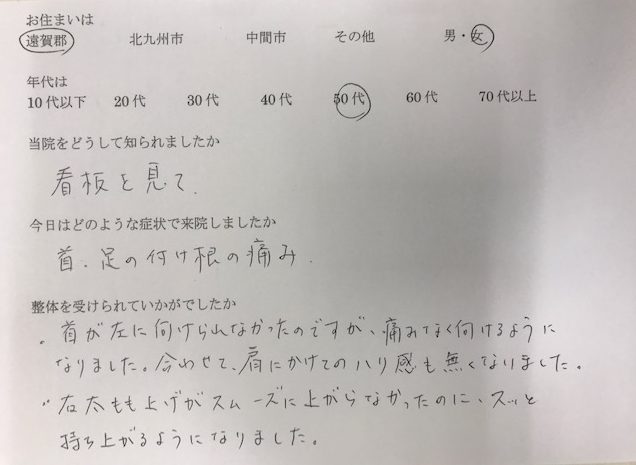 お住まいは
遠賀郡 北九州市 中間市 その他 男・女
年代は
10代以下 20代 30代 40代 50代 60代 70代以上
当院をどうして知られましたか
看板を見て.
今日はどのような症状で来院しましたか
首.足の付け根の痛み.
整体を受けられていかがでしたか
。首が左に向けられなかったのですが、痛みなく向けるように
なりました。合わせて、肩にかけてのハリ感も無くなりました。
〃右太もも上げがスムーズに上がらなかったのに、スッと
持ち上がるようになりました。